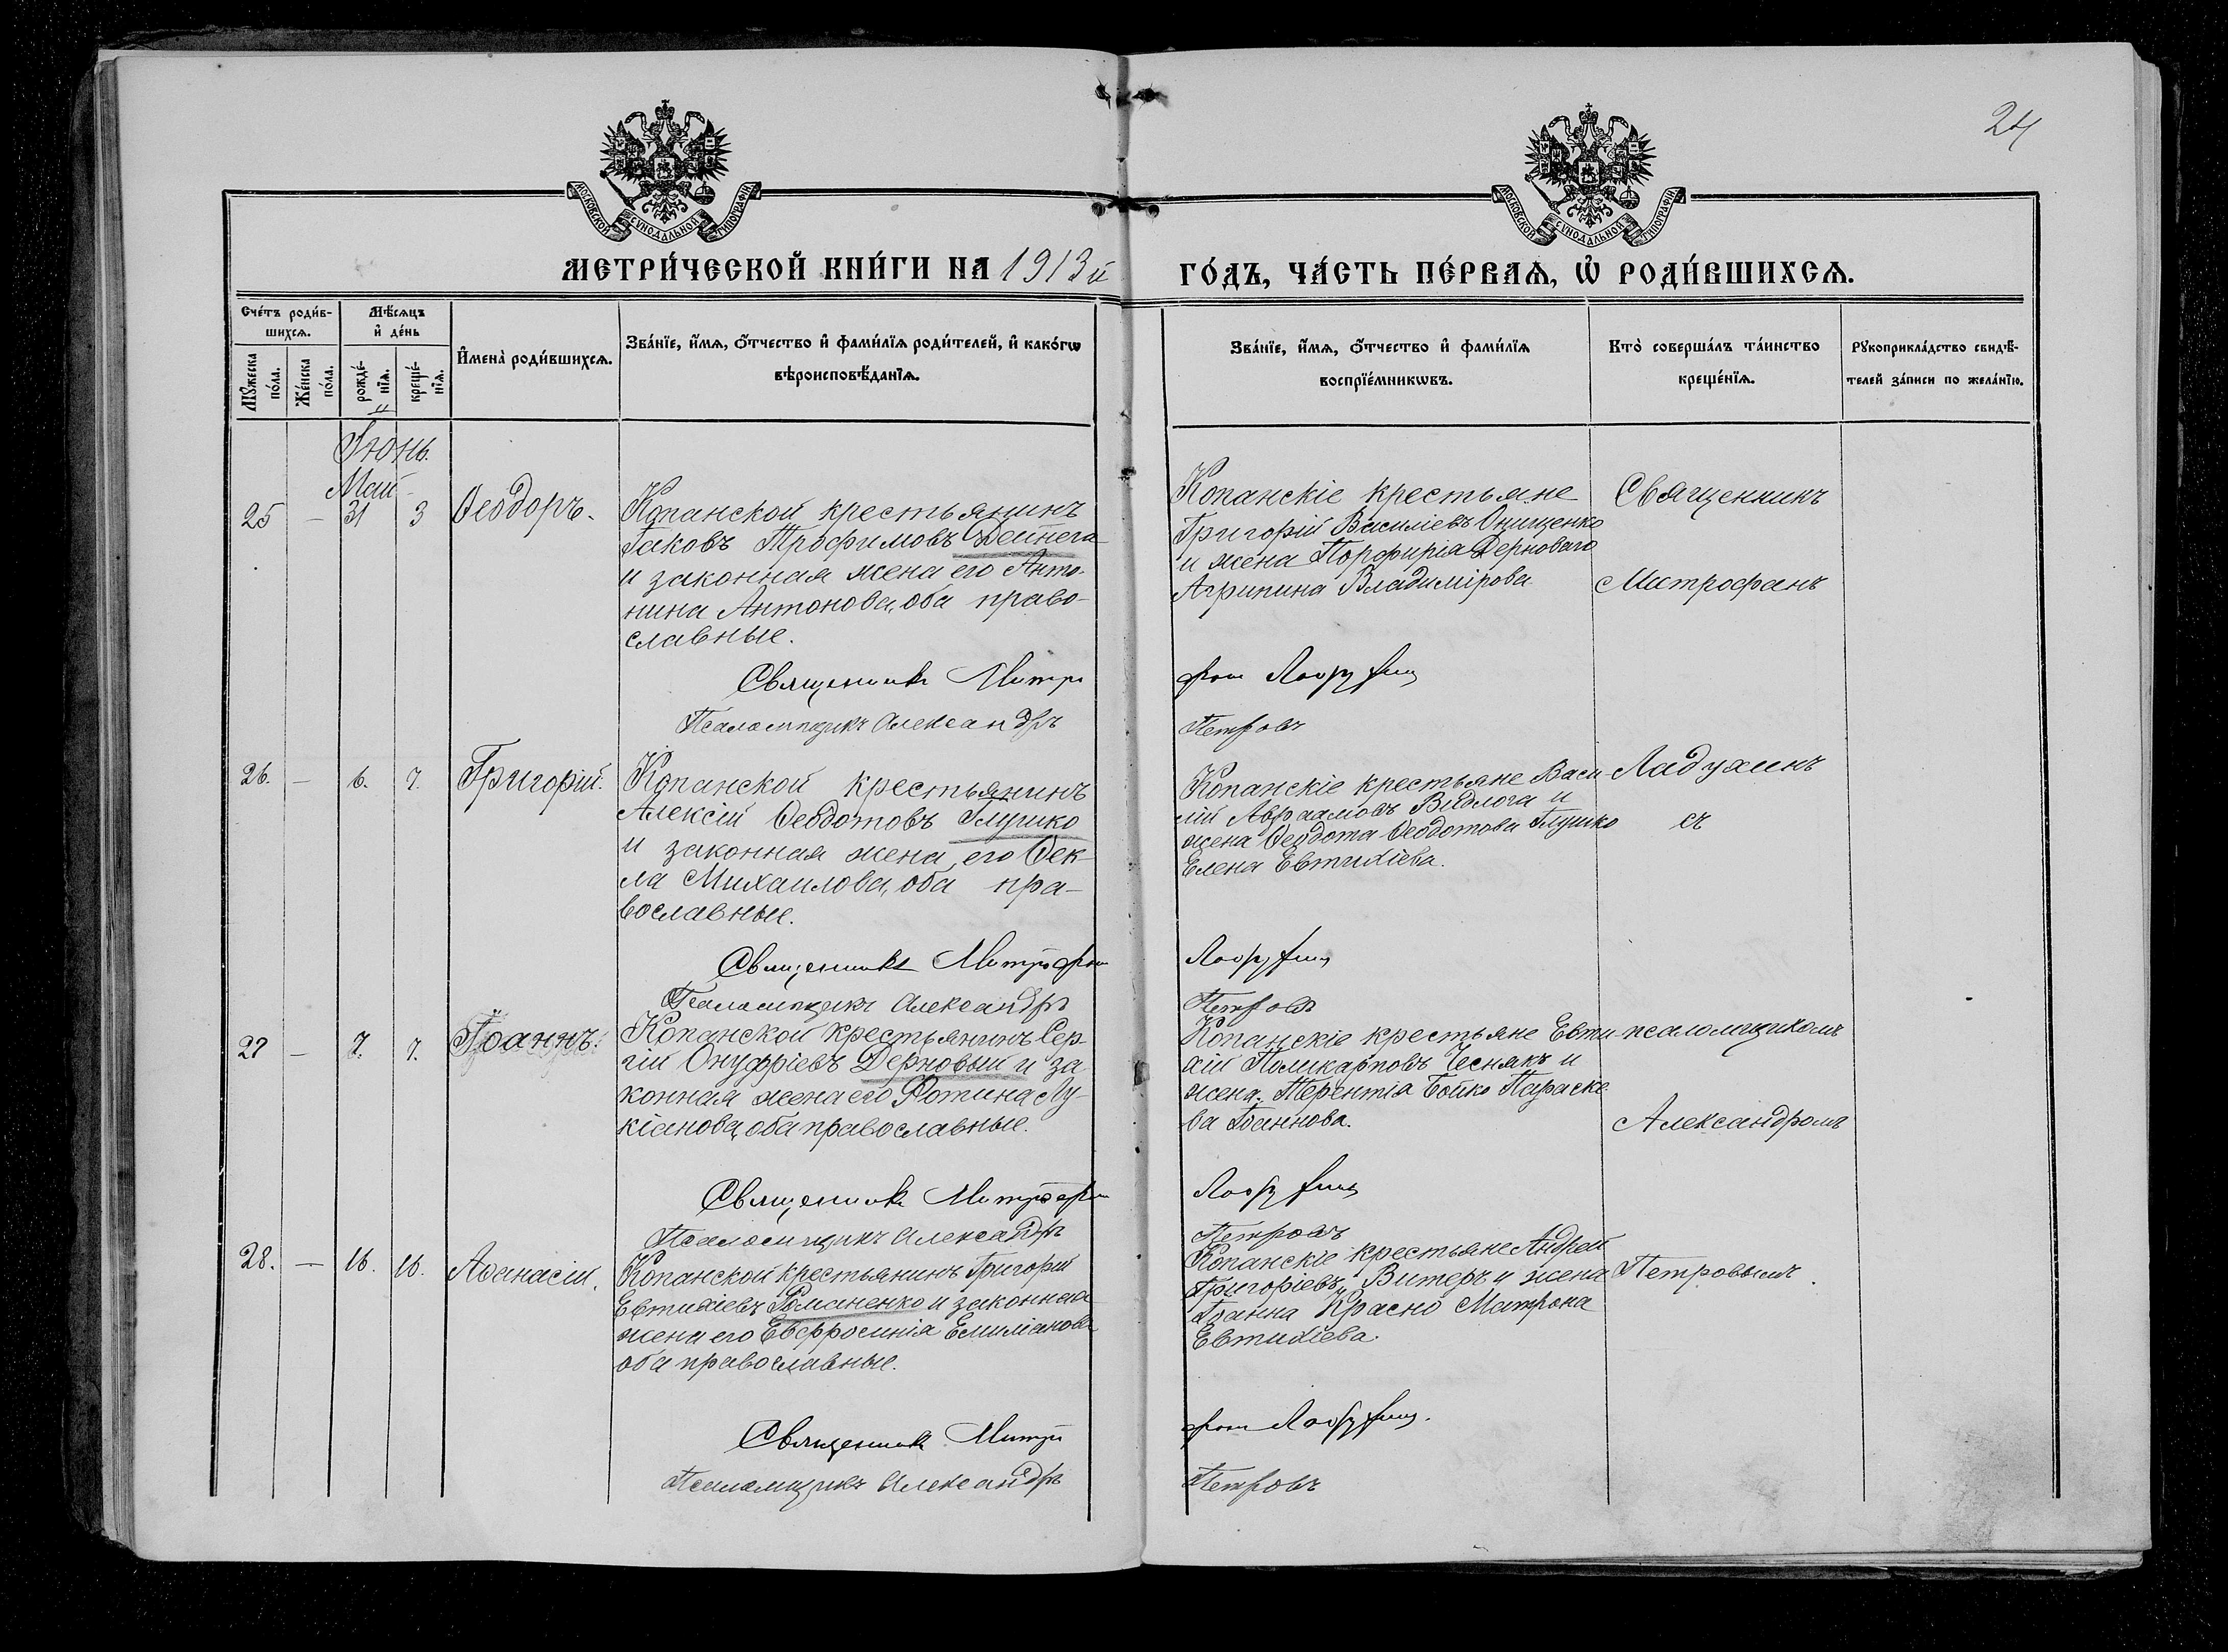 24
МОСКОВСКОЙ СѴНОДАЛЬНОЙ ТИПОГРАФІИ
МОСКОВСКОЙ СѴНОДАЛЬНОЙ ТИПОГРАФІИ
МЕТРИ́ЧЕСКОЙ КНИ́ГИ НА 1913й
ГО́ДЪ, ЧА́СТЬ ПЕ́РВАѦ, Ѡ҆ РОДИ́ВШИХСѦ.
Сче́тъ роди́в-
шихсѧ.
Мꙋжеска
по́ла.
Же́нска
по́ла.
Мѣ́сѧцъ
и҆ де́нь
рожде́-
нїѧ.
креще́-
нїѧ.
И҆мена̀ роди́вшихсѧ.
Зва́нїе, и҆́мѧ, ѻ҆́тчество и҆ фами́лїѧ роди́телей, и҆ како́гѡ
вѣроисповѣ́данїѧ.
Зва́нїе, и҆́мѧ, ѻ҆́тчество и҆ фами́лїѧ
воспрїе́мникѡвъ.
Кто̀ соверша́лъ та́инство
креще́нїѧ.
Рꙋкоприкла́дство свидѣ́-
телей за́писи по жела́нїю.
Іюнь.
Май
25 — 31 3 Ѳеодоръ.
Копанской крестьянинъ
Іаковъ Трофимовъ Дейнега
и законная жена его Анто-
нина Антонова, оба право-
славные.
Священникъ Митро
Псаломщикъ Александръ
Копанскіе крестьяне
Григорій Василіевъ Онищенко
и жена Порфирія Дерноваго
Агрипина Владимірова
фан
Петровъ
Священникъ
Митрофанъ
26. — 6. 7. Григорій.
Копанской крестьянинъ
Алексій Ѳеодотовъ Глушко
и законная жена его Ѳек-
ла Михаилова, оба пра-
вославные.
Священникъ Митрофан
Псаломщикъ Александръ
Копанскіе крестьяне Васи-
лій Авраамовъ
жена Ѳеодота Ѳеодотова Глушко
Елена Евтихіева.
Петровъ
Ладухинъ
съ
27 — 7. 7. Іоаннъ.
Копанской крестьянинъ Сер-
гій Онуфріевъ Дерновый и за
конная жена его Фотина Лу-
кіанова, оба православные.
Священникъ Митрофан
Псаломщикъ Александръ
Копанскіе крестьяне Евти-
хій Поликарповъ Чеснякъ и
жена Терентія Бойко Параске
ва Іоаннова.
Петровъ
псаломщикомъ
Александромъ
28. — 16. 16. Аѳанасій.
Копанской крестьянинъ Григорій
Евтихіевъ Романенко и законная
жена его Евфросинія Емиліанова
оба православные.
Священникъ Митро
Псаломщикъ Александръ
Копанскіе крестьяне Андрей
Григоріевъ Витеръ и жена
Іоанна Красно Матрона
Евтихіева.
фан
Петровъ
Петровымъ.